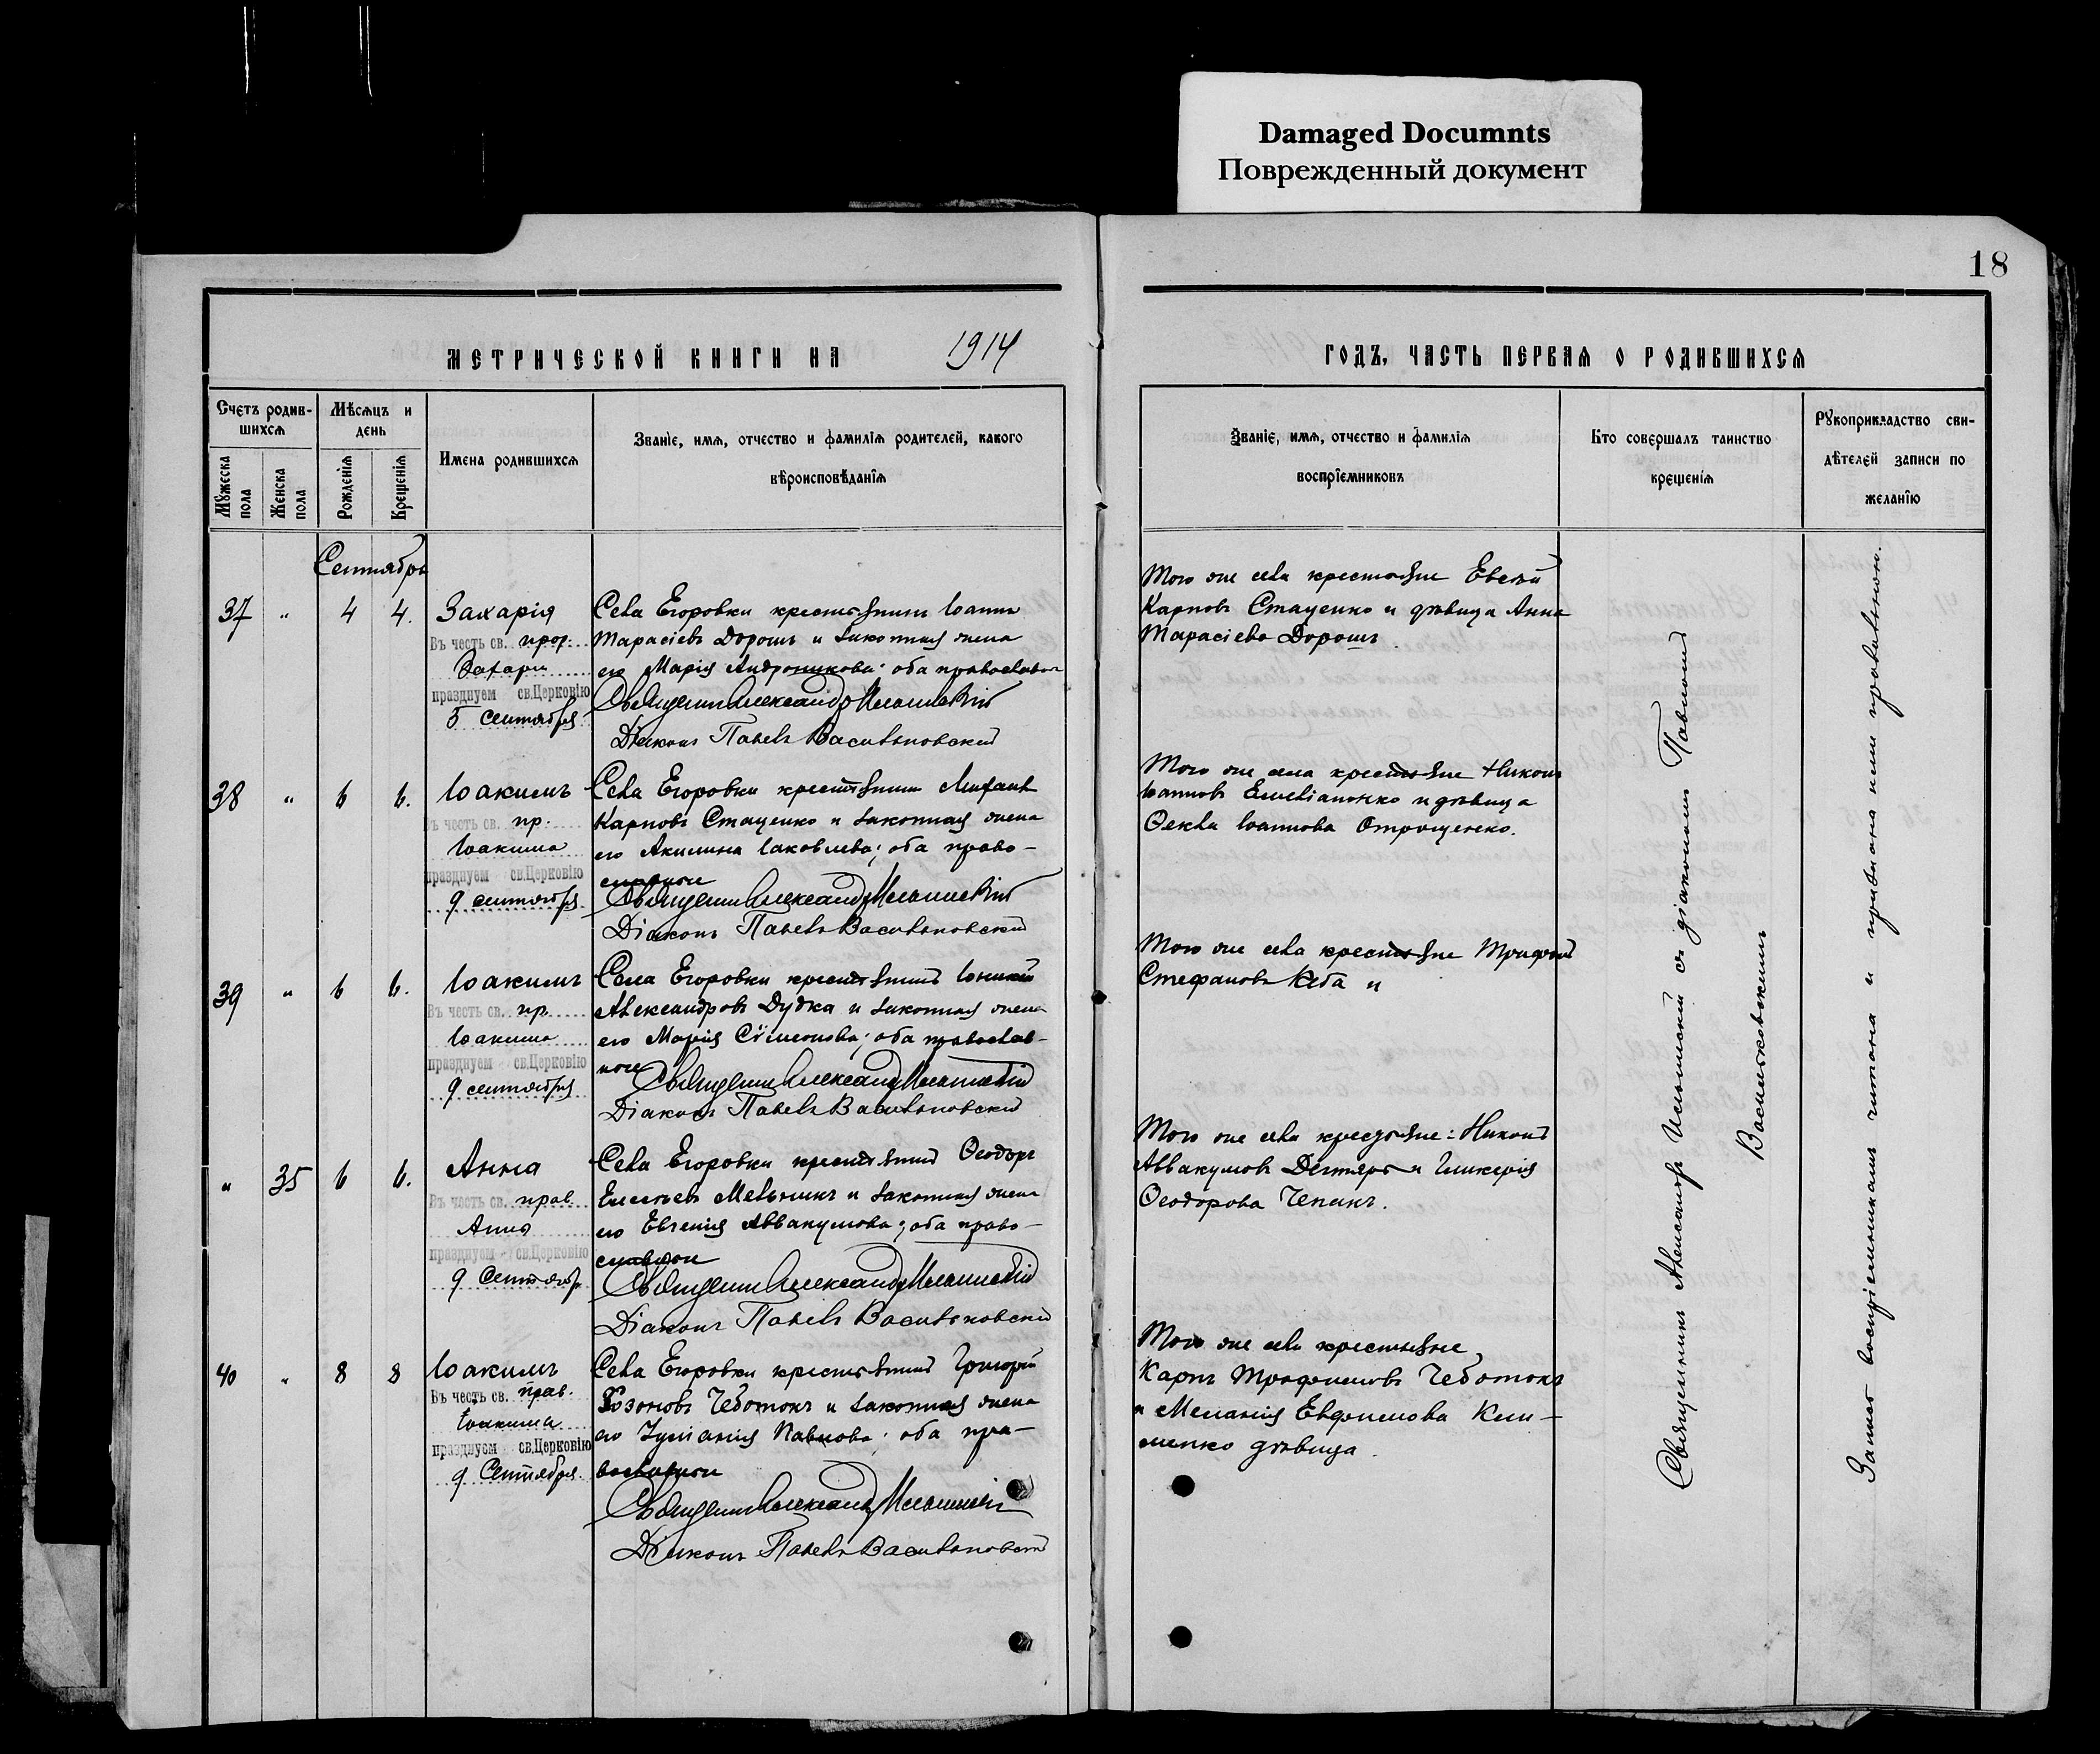 Damaged Documnts
Поврежденный документ
18
МЕТРИЧЕСКОЙ КНИГИ НА 1914 ГОДЪ, ЧАСТЬ ПЕРВАЯ О РОДИВШИХСЯ
Счетъ родив-
шихся
Мѣсяцъ и
день
Мужеска
пола
Женска
пола
Рожденія
Крещенія
Имена родившихся
Званіе, имя, отчество и фамилія родителей, какого
вѣроисповѣданія
Званіе, имя, отчество и фамилія
воспріемниковъ
Кто совершалъ таинство
крещенія
Рукоприкладство сви-
дѣтелей записи по
желанію
Сентябрь
37 " 4 4.
Захарія
Въ честь св. прор.
Захаріи
празднуем св.Церковію
5 сентября
Села Егоровки крестьянинъ Іоаннъ
Тарасіевъ Дорошъ и законная жена
его Марія Андроникова; оба православн
Священникъ Александр
Діаконъ Павелъ Васильковскій
Того же села крестьяне Евсевій
Карповъ Стаценко и дѣвица Анна
Тарасіева Дорошъ.
38 " 6 6.
Іоакимъ
Въ честь св. пр.
Іоакима
празднуем св.Церковію
9 сентября
Села Егоровки крестьянинъ
Карповъ Стаценко и законная жена
его Акилина Іаковлева; оба право-
славные
Священникъ Александр
Діаконъ Павелъ Васильковскій
Того же села крестьяне Никонъ
Іоанновъ Емеліаненко и дѣвица
Ѳекла Іоаннова
39 " 6 6.
Іоакимъ
Въ честь св. пр.
Іоакима
празднуем св.Церковію
9 сентября
Села Егоровки крестьянинъ
Александровъ Дудка и законная жена
его Марія Сѵмеонова; оба православ-
ные
Священникъ Александр
Діаконъ Павелъ Васильковскій
Того же села крестьяне Трифонъ
Стефановъ и
" 35 6 6.
Анна
Въ честь св. прав.
Анны
празднуем св.Церковію
9 Сентябр.
Села Егоровки крестьянинъ Ѳеодоръ
Елисеевъ Мельникъ и законная жена
его Евгенія Аввакумова; оба право-
славные
Священникъ Александр
Діаконъ Павелъ Васильковскій
Того же села крестьяне: Никонъ
Аввакумовъ Дегтярь и Гликерія
Ѳеодорова Чепикъ.
40 " 8 8
Іоакимъ
Въ честь св. прав.
Іоакима
празднуем св.Церковію
9 Сентября.
Села Егоровки крестьянинъ Григорій
Чеботокъ и законная жена
его Іуліанія Павлова; оба пра-
вославные
Священникъ Александр
Діаконъ Павелъ Васильковскій
Того же села крестьяне
Карпъ Трофимовъ Чеботокъ
и Меланія Евфимова Кли-
менко дѣвица.
Священникъ Александръ съ діакономъ Павломъ
Васильковскимъ
Запись воспріемникамъ читана и признана ими правильною.